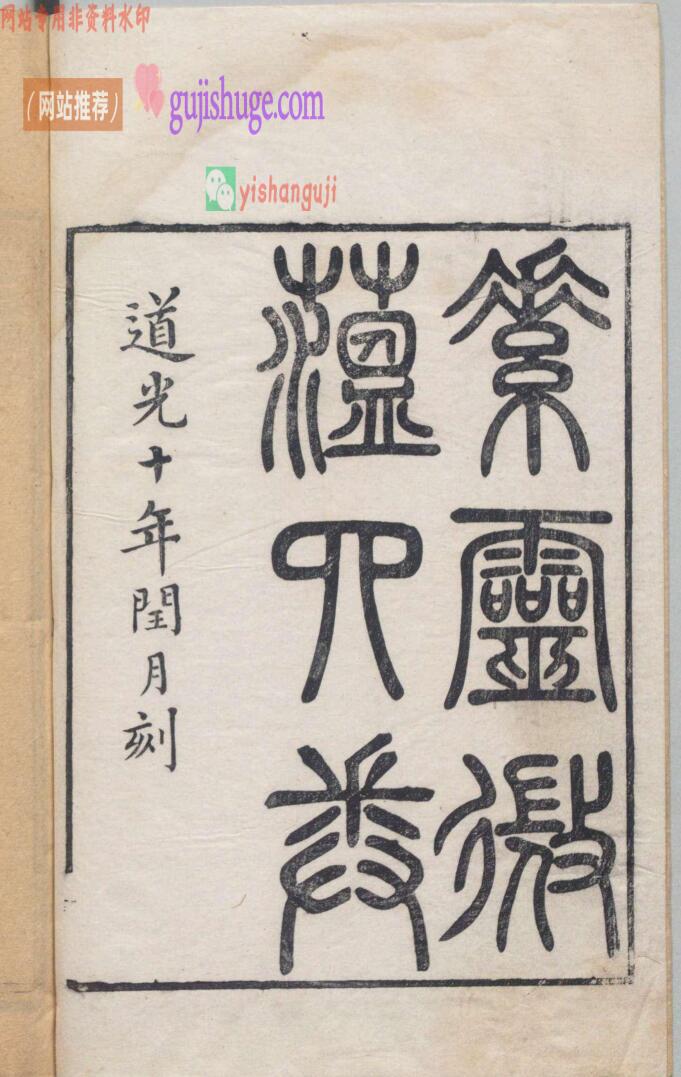 网站专用非资料水印
（网站推荐）
gujishuge.com
yishanguji
素靈微
薀四卷
道光十年閏月刻